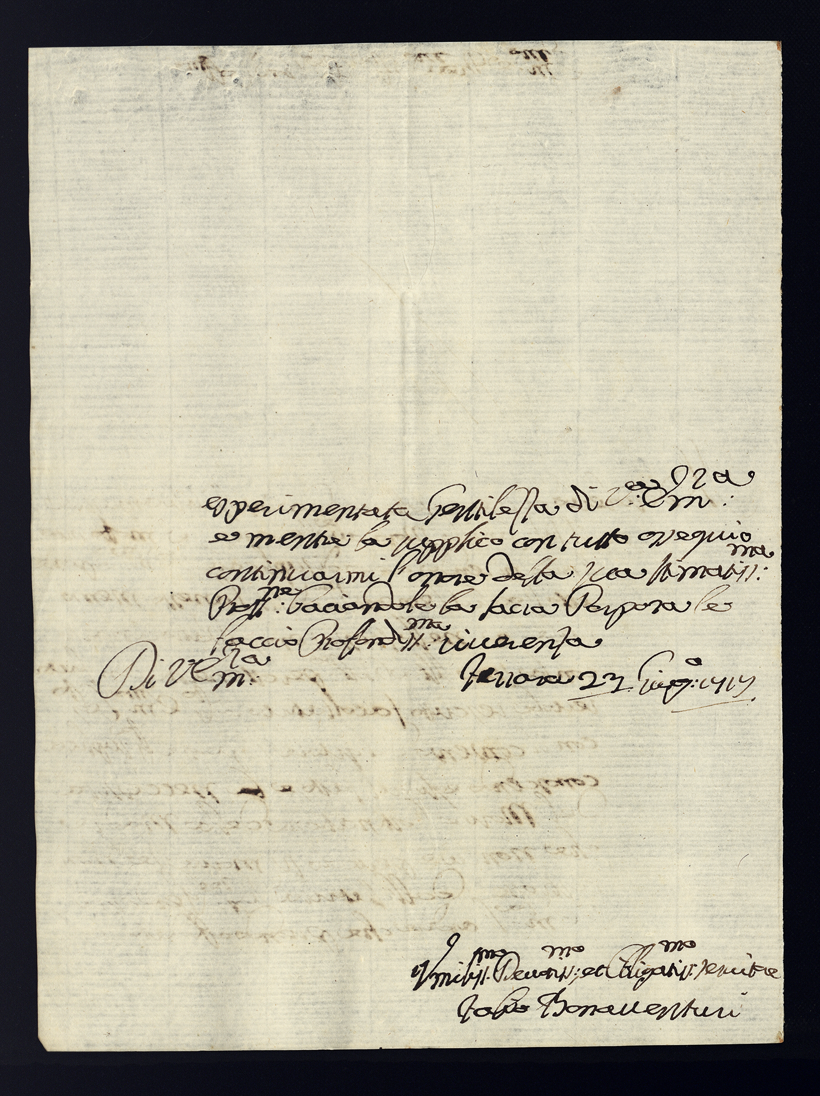 esperimentata Gentilezza di V.ra Em.za:
e mentre la supplico con tutto ossequio
continuarmi l'onore della sua stimatiss:ma
Prott:ne baciandole la sacra Porpora le
faccio Profondiss:ma riverenza
Di V Em:za Ferrara 27 Giug:o 1717
Vmiliss:mo Devotiss:mo et Obligatiss:mo Servitore
Fabio Bonaventuri